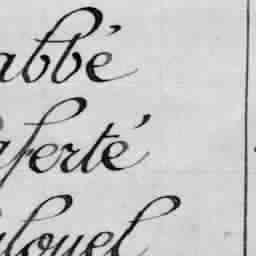 abbé
aferté
alouel